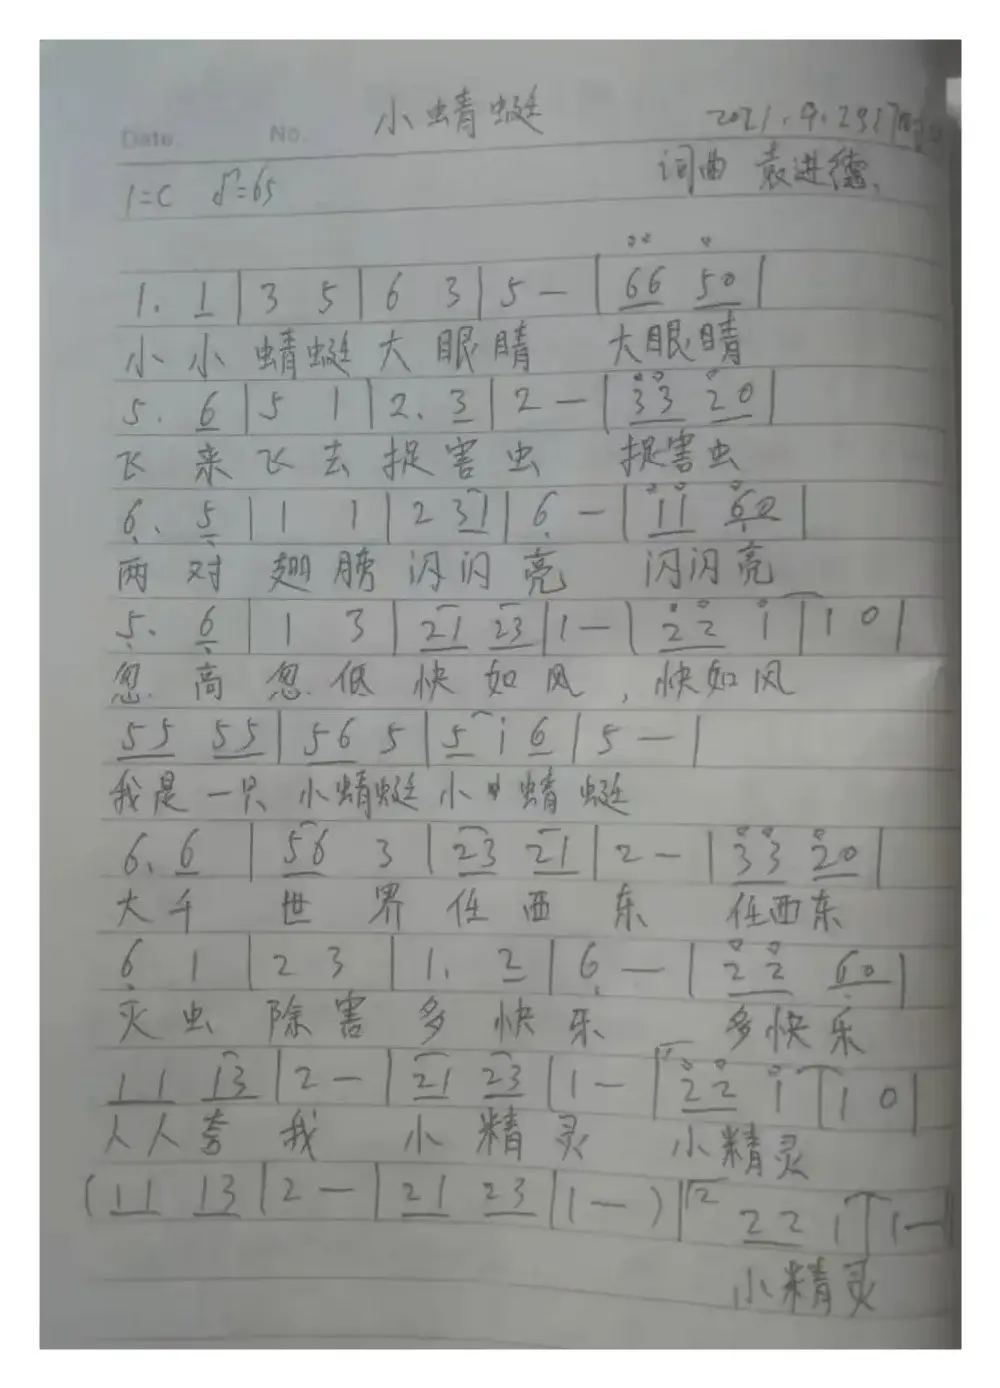 小蜻蜓
Date. No. 2021.9.29
1=C ♩=65 词曲 袁进德
1. 1 | 3 5 | 6 3 | 5 — | 66 50 |
小小蜻蜓大眼睛 大眼睛
5. 6 | 5 1 | 2. 3 | 2 — | 33 20 |
飞来飞去捉害虫 捉害虫
6. 5 | 1 1 | 2 31 | 6 — | 11 60 |
两对翅膀闪闪亮 闪闪亮
5. 6 | 1 3 | 21 23 | 1 — | 22 1 | 1 0 |
忽高忽低快如风,快如风
55 55 | 56 5 | 5 i 6 | 5 — |
我是一只小蜻蜓小蜻蜓
6. 6 | 56 3 | 23 21 | 2 — | 33 20 |
大千世界任西东 任西东
6 1 | 2 3 | 1. 2 | 6 — | 22 60 |
灭虫除害多快乐 多快乐
11 13 | 2 — | 21 23 | 1 — | 22 1 | 1 0 |
人人夸我小精灵 小精灵
(11 13 | 2 — | 21 23 | 1 — ) | 2 22 1 | 1 — |
小精灵